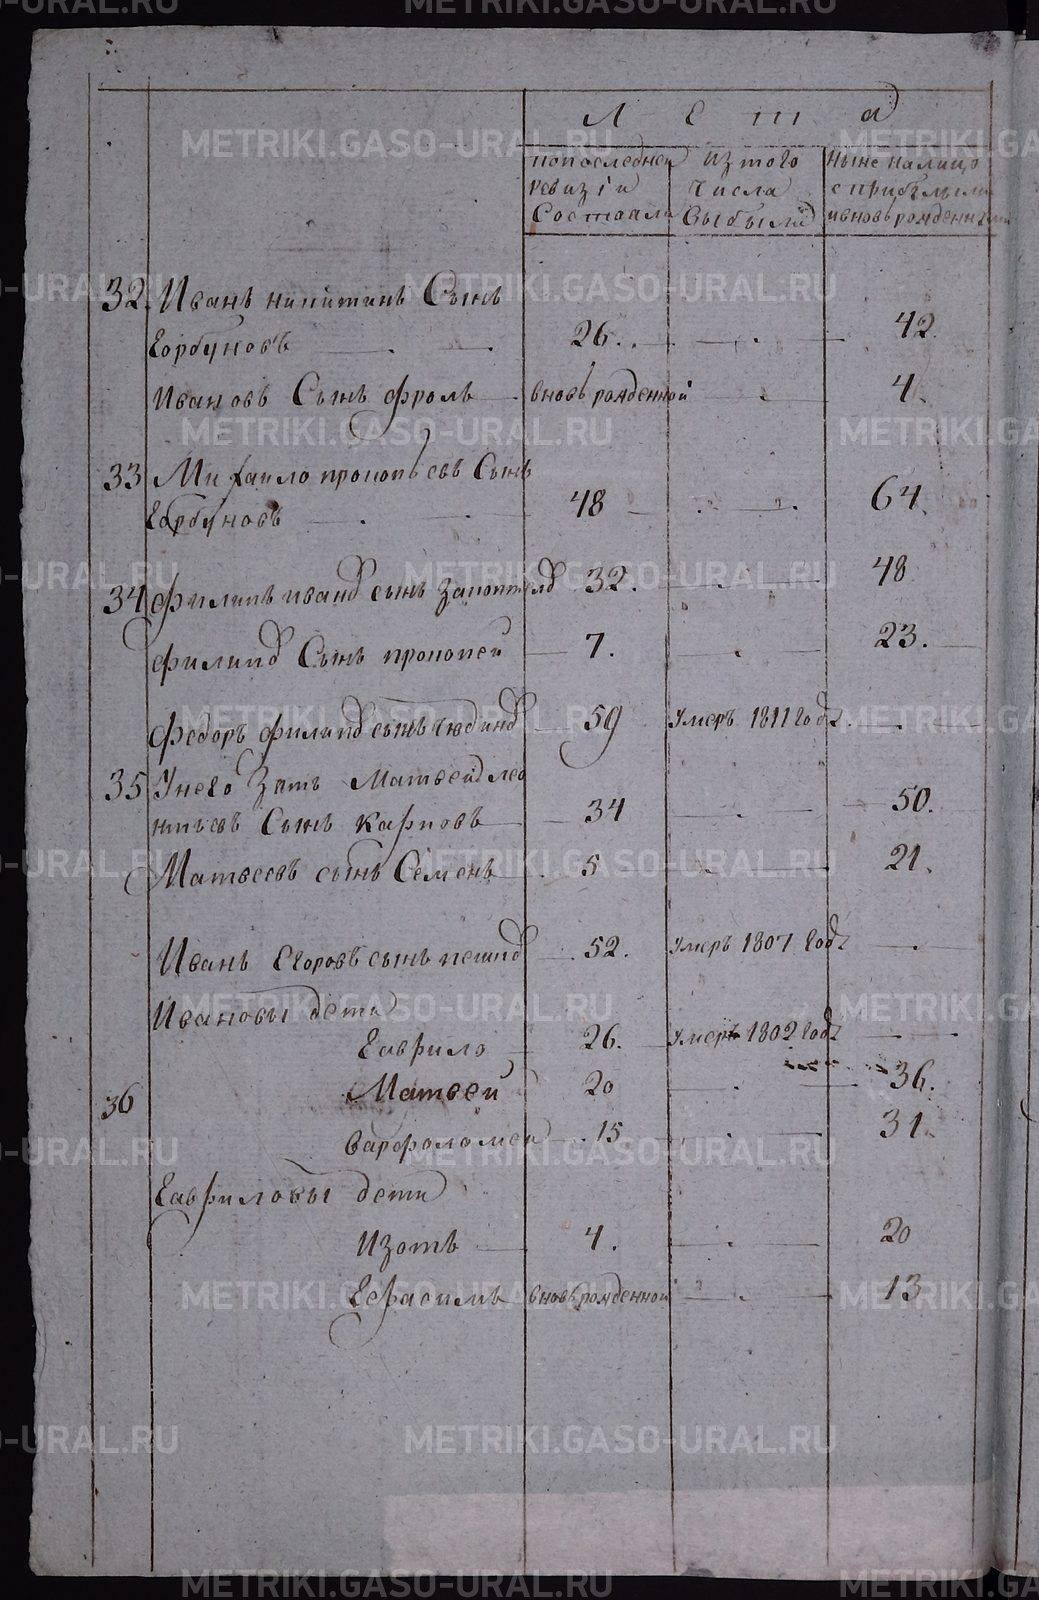 Лета
попоследней ревизiи Состояли
изтого Числа Выбыли
ныне налицо сприбылыми ивновьрожденными
32. Иванъ никитинъ Сынъ
Горбуновъ 26. 42.
Ивановъ Сынъ фролъ вновь рожденной 4.
33 Михайло прокопьевъ Сынъ
Горбуновъ 48 64.
34 филипъ иванов сынъ 32. 48
филипов Сынъ прокопей 7. 23.
Федоръ филипов сынъ чюдинов 59 умеръ 1811 году
35 Унего Зять Матвей Лео
нтьевъ Сынъ Карповъ 34 50.
Матвеевъ сынъ Семенъ 5 21.
Иванъ Егоровъ сынъ 52. умеръ 1807 году
Ивановы дети
Гаврило 26. умеръ 1802 году
36 Матвей 20 36.
Варфоломей 15 31.
Гавриловы дети
Изотъ 4. 20
Герасимъ вновьрожденной 13
METRIKI.GASO-URAL.RU